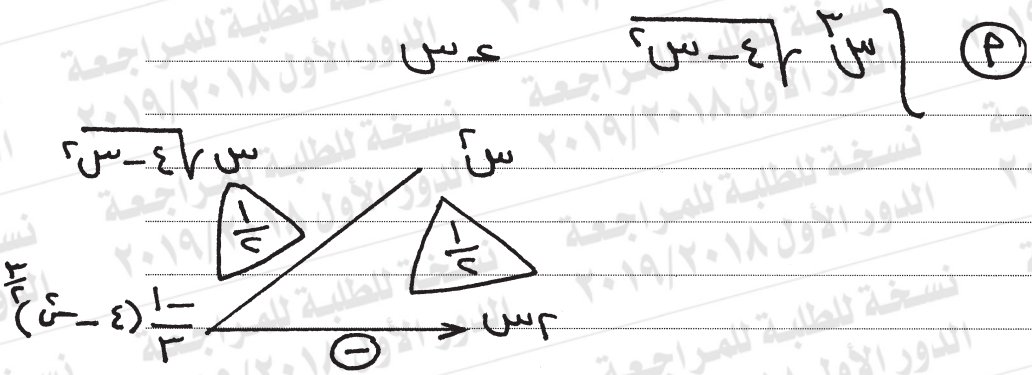 م ∫ س³ √(٤ – س²) ءس
س² س √(٤ – س²)
١/٢ ١/٢
٢س – ١/٣ – (٤ – س²)^(٣/٢)
نسخة للطلبة للمراجعة
الدور الأول ٢٠١٨/٢٠١٩